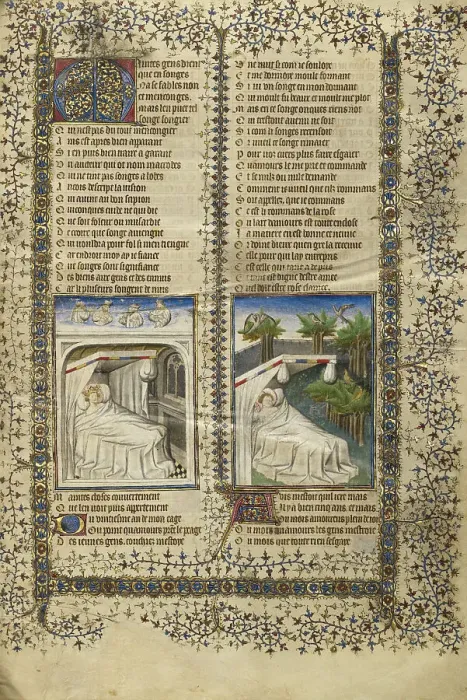 Maintes gens dient
que en songes
Na se fables non
et mensonges
mais len puet tel
songe songier
Qui nest pas du tout mencongier
Ains est apres bien apparant
Si en puis bien traire a garant
Un aucteur qui ot non macrobes
Qui ne tint pas songes a lobes
Aicois descript la vision
Qui avint au
Quiconques cuide ne qui die
Que soit folour ou musardie
De croire que songe aviengne
Qui vouldra pour fol si men tiengne
Car endroit moy ay ie fiance
Que songes sont signifiance
Des biens aux gens et des ennuis
Car li pluseurs songent de nuis
Maintes choses couvertement
Que len voit puis appertement
Ou vintiesme an de mon eage
Ou point quamours prent le peage
Des iennes gens couchiez mestoye
Une nuit si com ie souloye
Et me dormoye moult forment
Si vi un songe en mon dormant
Qui moult fu beaux et moult me plot
Mais en ce songe onques riens not
Qui trestout avenu ne soit
Si com li songes
Or vueil ce songe rimoier
Pour voz cuers plus faire esgaier
Quamours le me prie et commande
Et se nulz ou nulle demande
Comment ie vueil que cilz rommans
Soit appellez que ie commans
Cest li rommans de la rose
Ou lart damours est toute enclose
La maniere en est bonne et neuve
Or doint dieux quen gre la recueuve
Celle pour qui lay entrepris
Cest celle qui tant a de pris
Et tant est digne destre amee
Quel doit estre rose clamee
Avis mestoit quil iert mais
Il y a bien cinq ans et mais
Quen may estoie
Ou mois amoureux plain de ioye
Ou mois que toute rien sesgaye